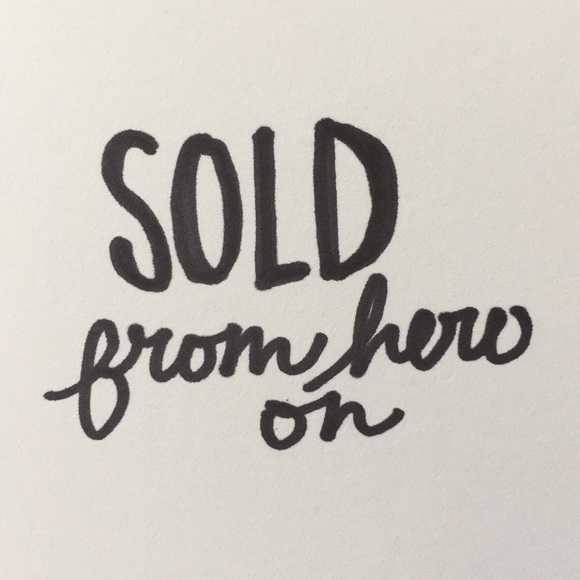 SOLD
from here
on